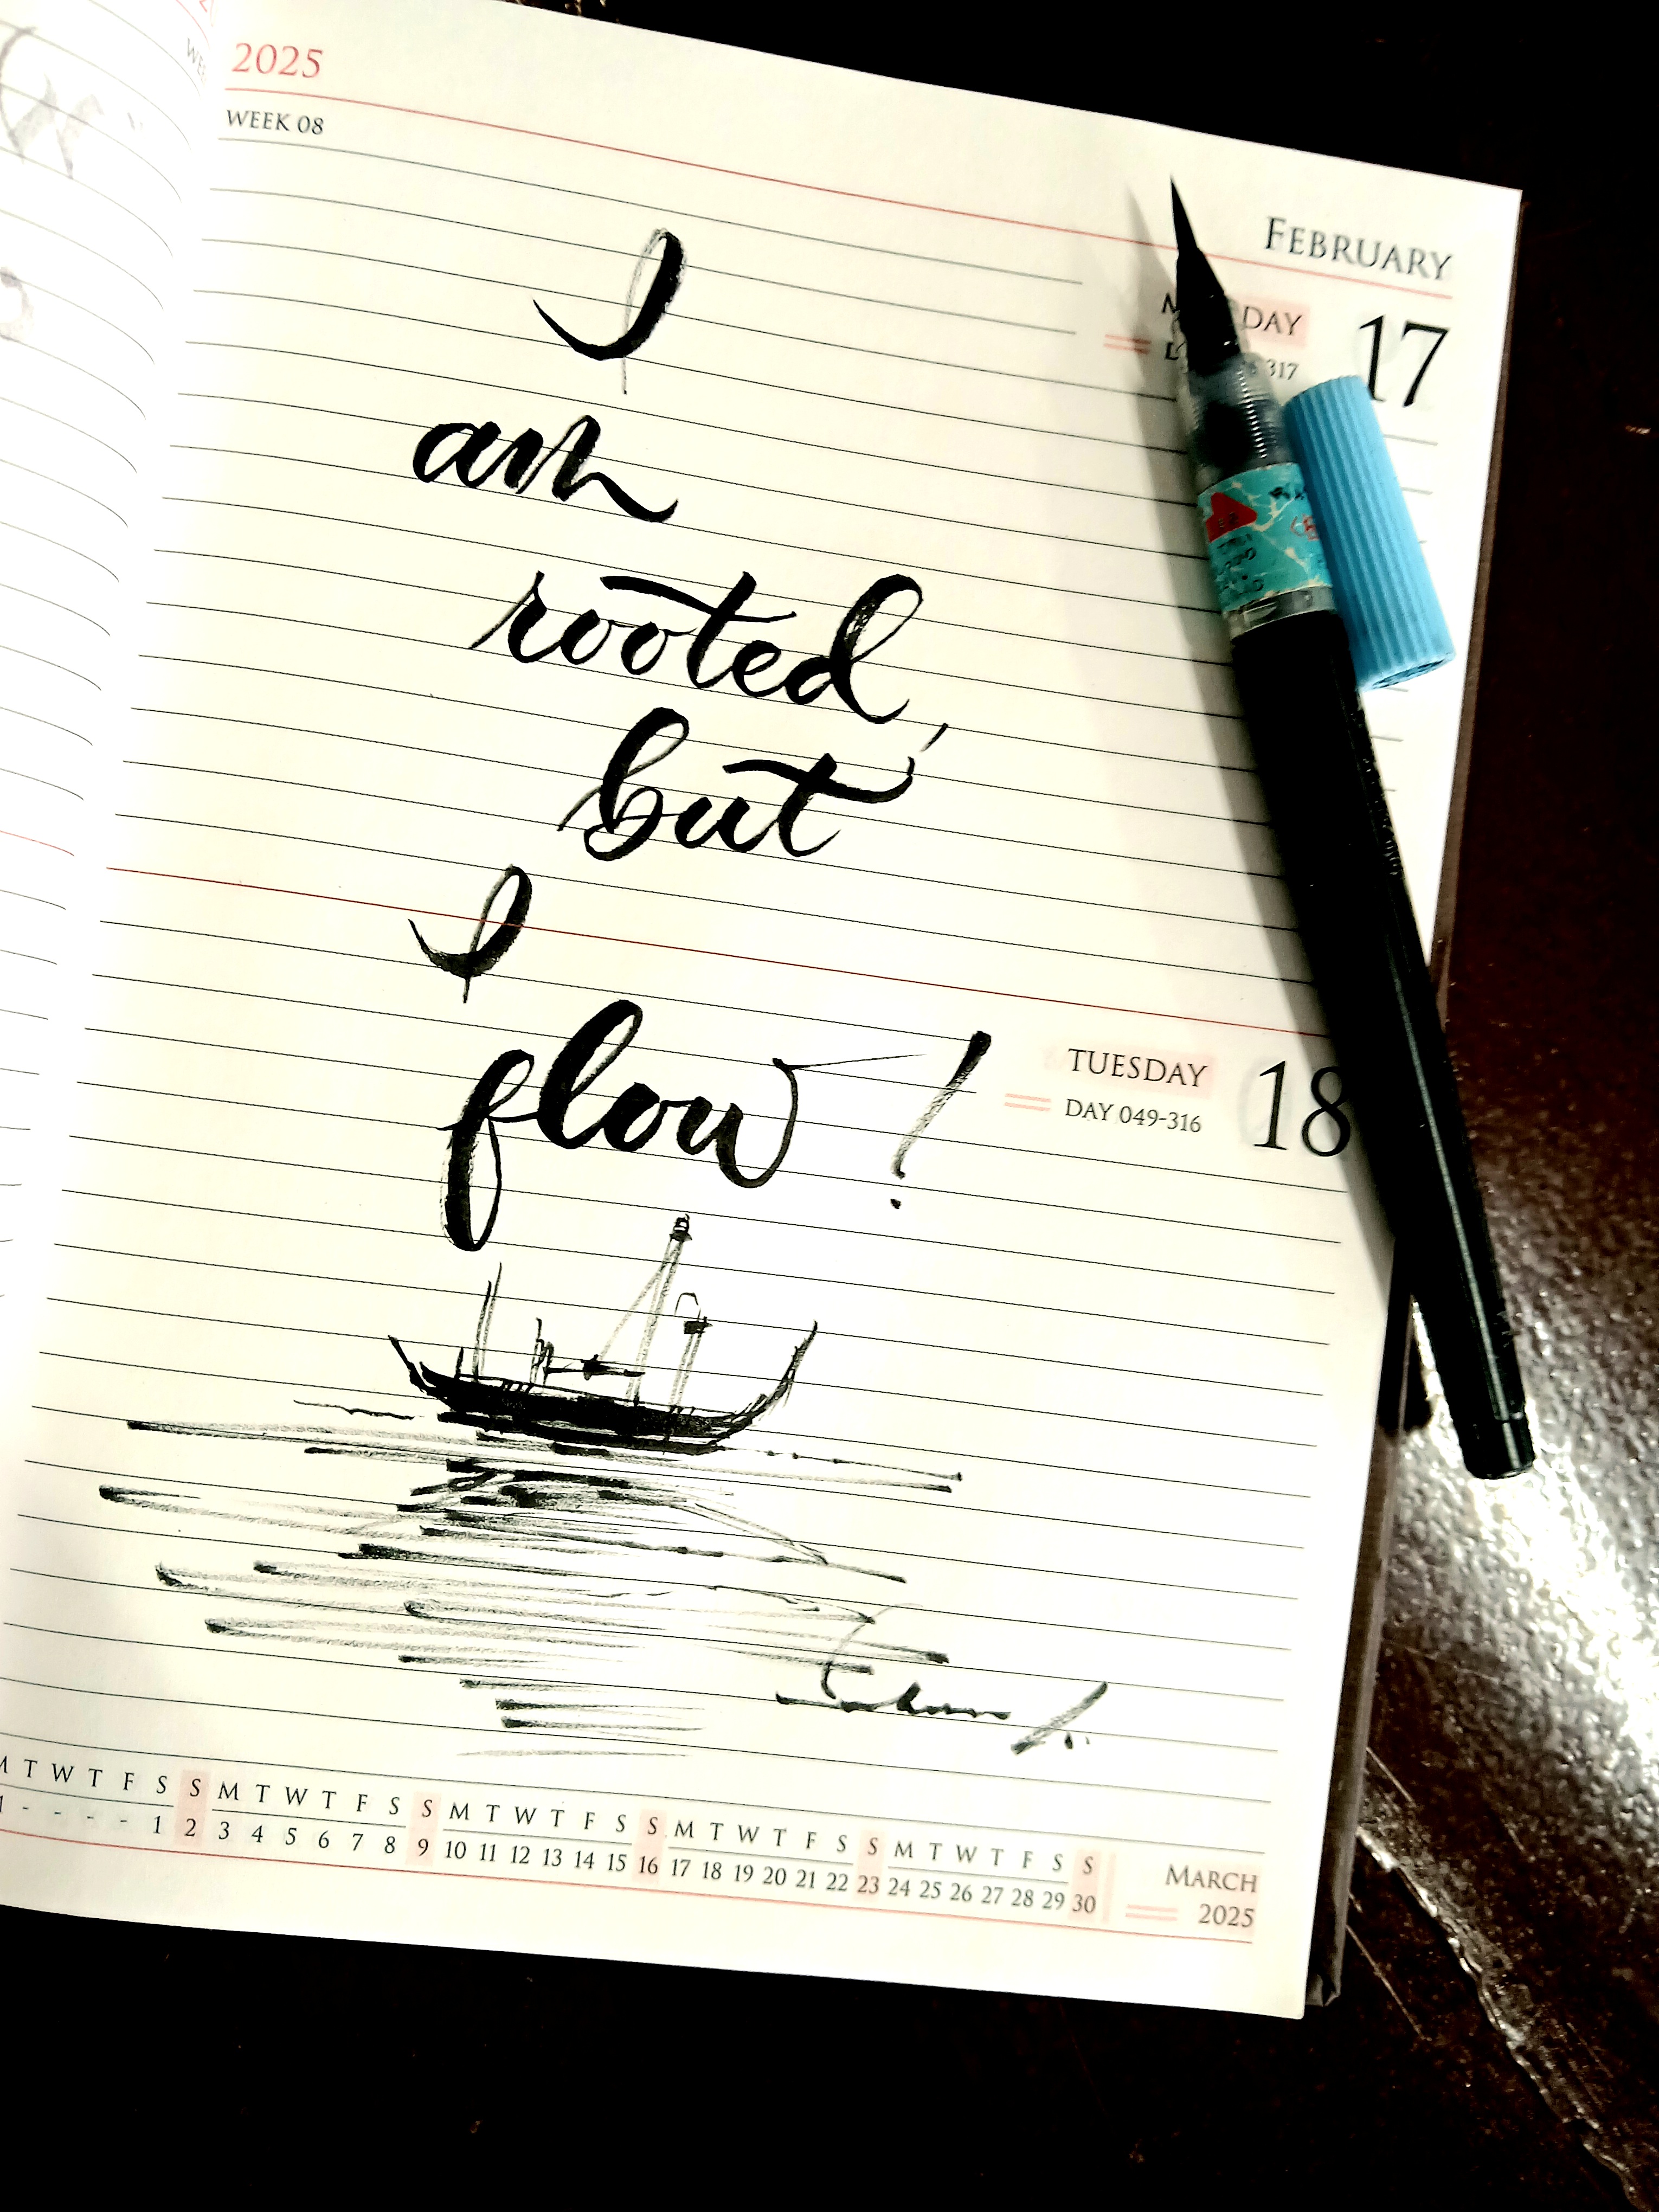 2025
WEEK 08
FEBRUARY
DAY 17
317
I
am
rooted,
but
I
flow!
TUESDAY 18
DAY 049-316
M T W T F S S M T W T F S S M T W T F S S M T W T F S S M T W T F S S
- - - - 1 2 3 4 5 6 7 8 9 10 11 12 13 14 15 16 17 18 19 20 21 22 23 24 25 26 27 28 29 30
MARCH
2025